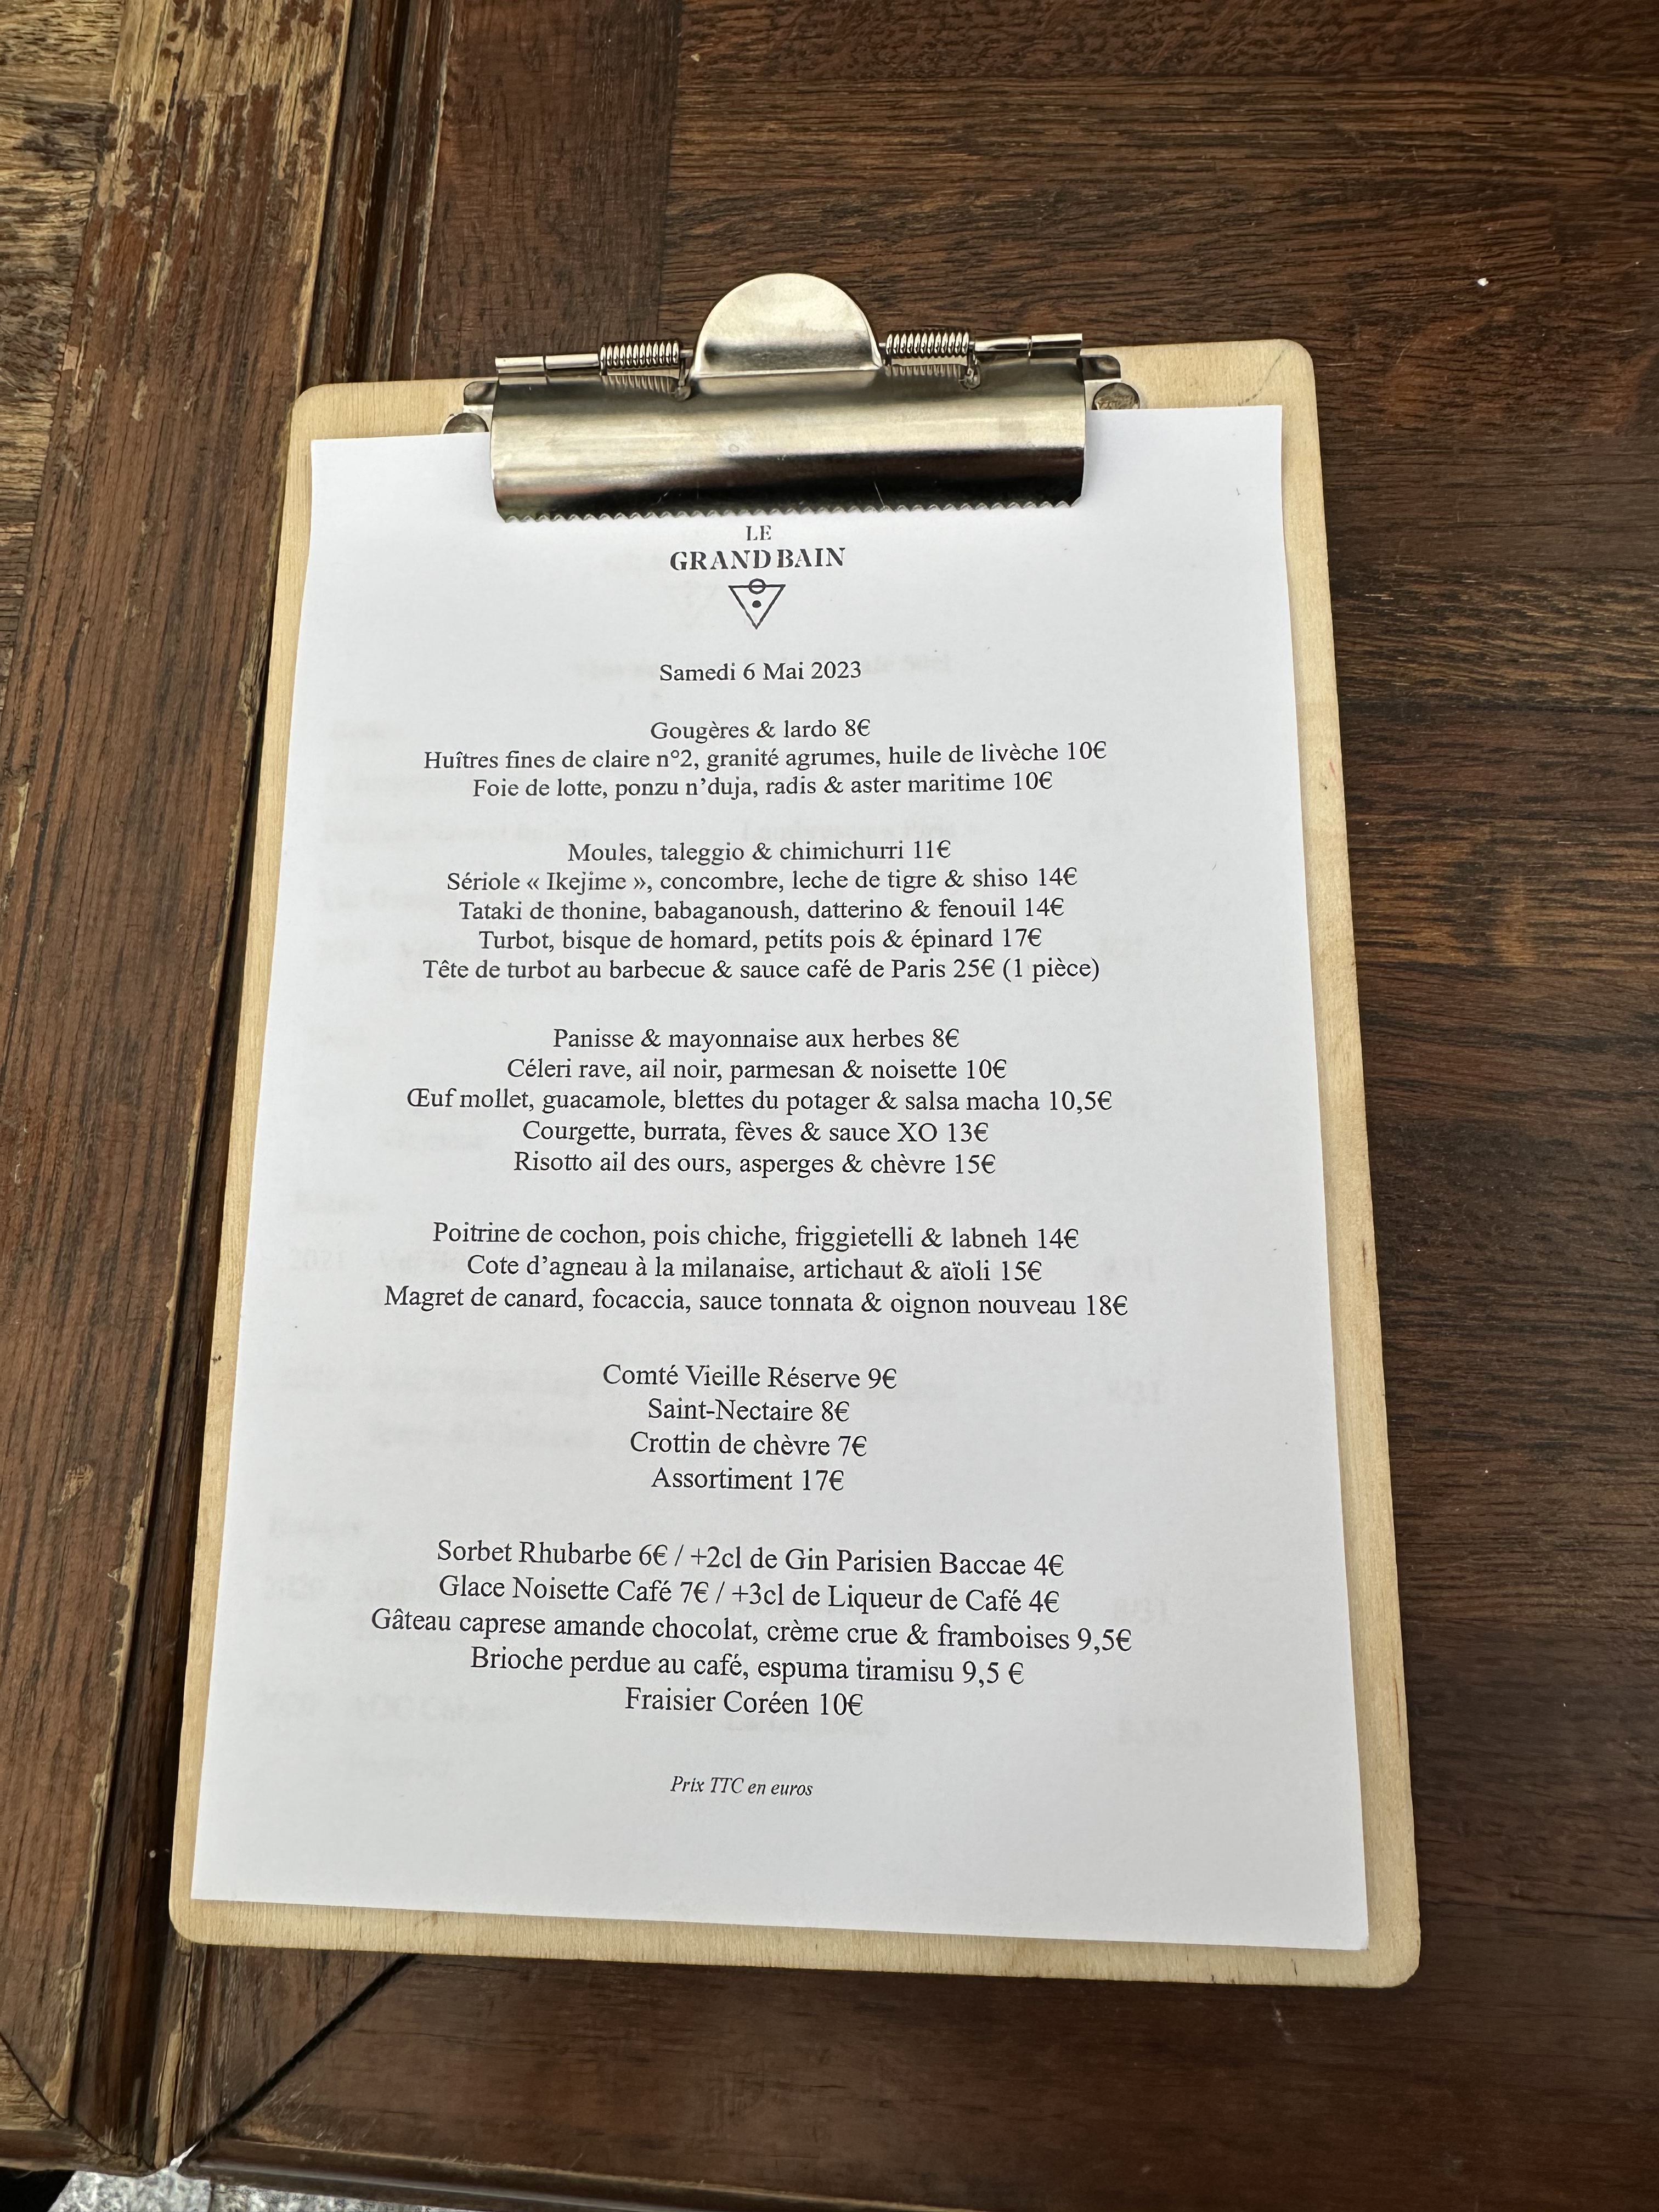 LE
GRAND BAIN
Samedi 6 Mai 2023
Gougères & lardo 8€
Huîtres fines de claire n°2, granité agrumes, huile de livèche 10€
Foie de lotte, ponzu n’duja, radis & aster maritime 10€
Moules, taleggio & chimichurri 11€
Sériole « Ikejime », concombre, leche de tigre & shiso 14€
Tataki de thonine, babaganoush, datterino & fenouil 14€
Turbot, bisque de homard, petits pois & épinard 17€
Tête de turbot au barbecue & sauce café de Paris 25€ (1 pièce)
Panisse & mayonnaise aux herbes 8€
Céleri rave, ail noir, parmesan & noisette 10€
Œuf mollet, guacamole, blettes du potager & salsa macha 10,5€
Courgette, burrata, fèves & sauce XO 13€
Risotto ail des ours, asperges & chèvre 15€
Poitrine de cochon, pois chiche, friggietelli & labneh 14€
Cote d’agneau à la milanaise, artichaut & aïoli 15€
Magret de canard, focaccia, sauce tonnata & oignon nouveau 18€
Comté Vieille Réserve 9€
Saint-Nectaire 8€
Crottin de chèvre 7€
Assortiment 17€
Sorbet Rhubarbe 6€ / +2cl de Gin Parisien Baccae 4€
Glace Noisette Café 7€ / +3cl de Liqueur de Café 4€
Gâteau caprese amande chocolat, crème crue & framboises 9,5€
Brioche perdue au café, espuma tiramisu 9,5 €
Fraisier Coréen 10€
Prix TTC en euros